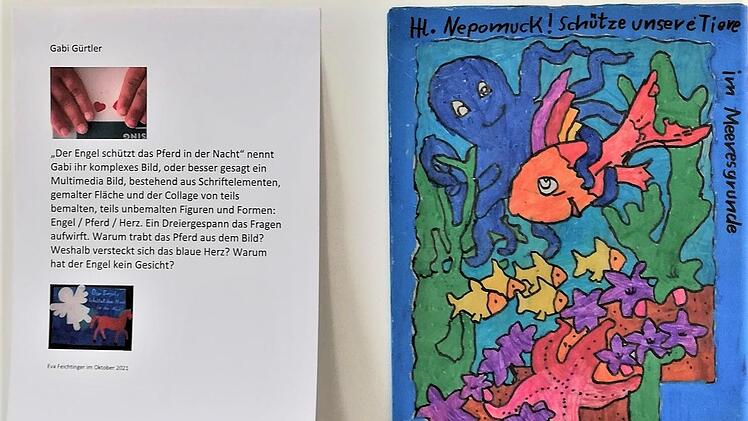 Gabi Gürtler
„Der Engel schützt das Pferd in der Nacht“ nennt
Gabi ihr komplexes Bild, oder besser gesagt ein
Multimedia Bild, bestehend aus Schriftelementen,
gemalter Fläche und der Collage von teils
bemalten, teils unbemalten Figuren und Formen:
Engel / Pferd / Herz. Ein Dreiergespann das Fragen
aufwirft. Warum trabt das Pferd aus dem Bild?
Weshalb versteckt sich das blaue Herz? Warum
hat der Engel kein Gesicht?
Eva Feichtinger im Oktober 2021
Hl. Nepomuck! Schütze unsere Tiere
im Meeresgrunde